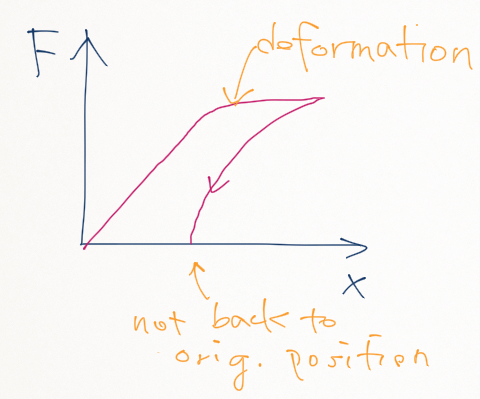 F
deformation
x
not back to
orig. position